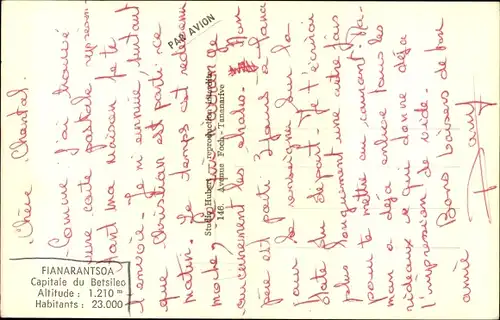 PAR AVION
Chère Chantal.
Comme j'ai trouvé
une carte postale représen-
tant ma maison je te
l'envoie. Je m'ennuie surtout
que Christian est parti ce
matin. Le temps est redevenu
moche,
aucunement les chahu. Mon
père est parti 3 jours à Tana
pour se renseigner sur la
date du départ. Je t'écrirai
longuement une autre fois
pour te mettre au courant. Ma-
man a déjà enlevé tous les
rideaux ce qui donne déjà
l'impression de vide.
Bons baisers de ton
amie
Dany
Studio Hubert - reproduction interdite
146, Avenue Foch - Tananarive
FIANARANTSOA
Capitale du Betsileo
Altitude : 1.210 m
Habitants : 23.000